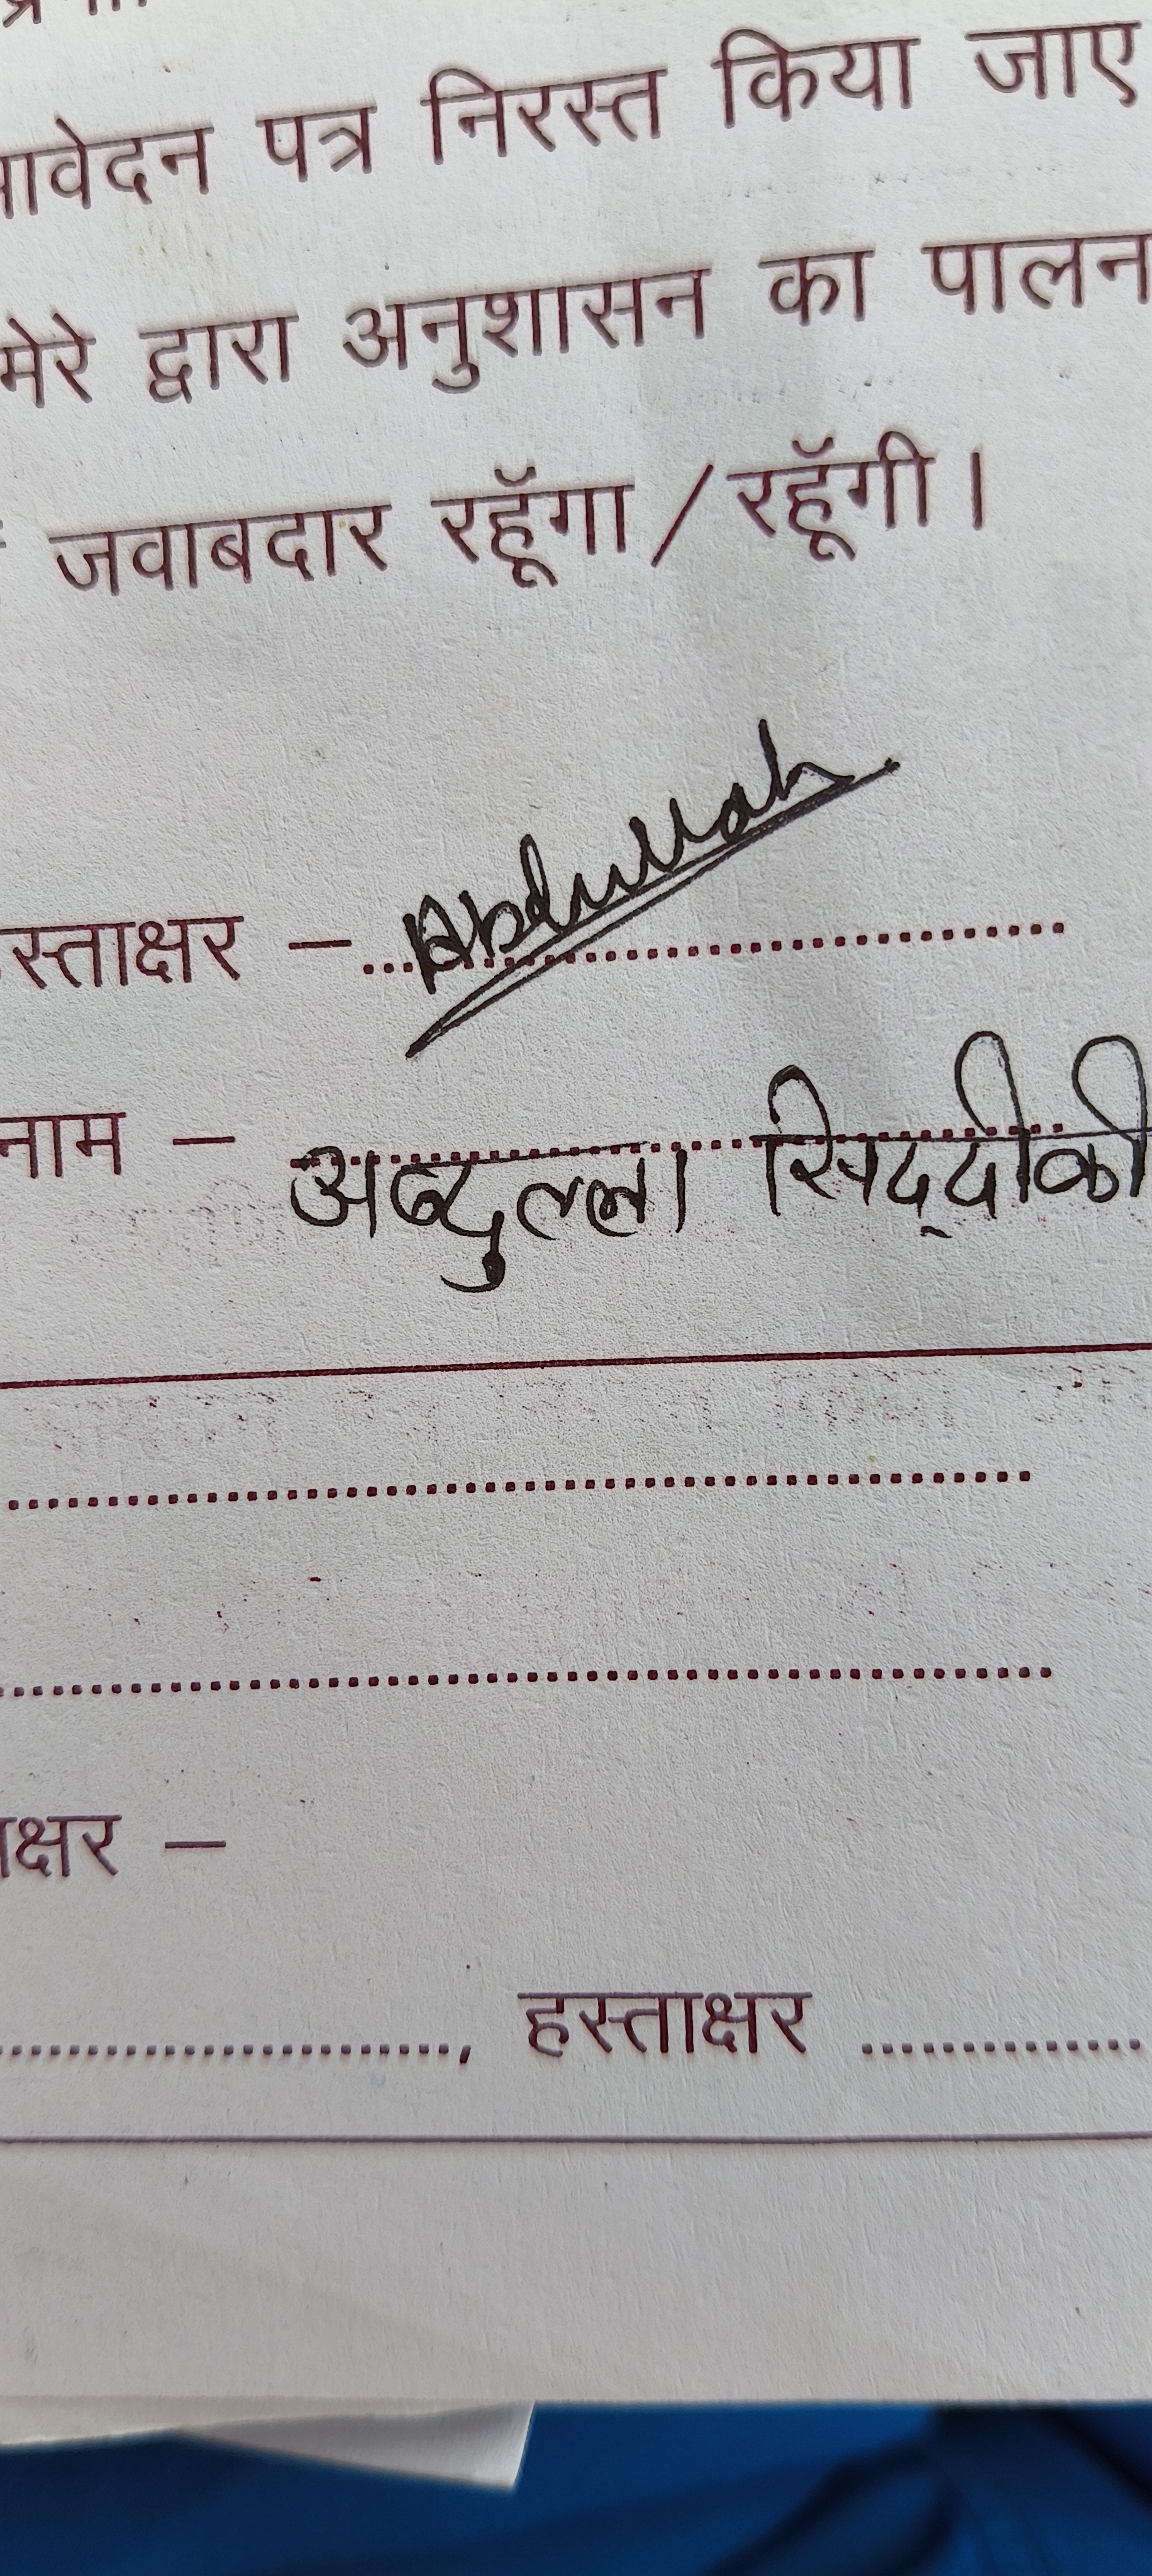 आवेदन पत्र निरस्त किया जाए
मेरे द्वारा अनुशासन का पालन
जवाबदार रहूॅंगा / रहूॅंगी ।
हस्ताक्षर – Abdullah
नाम – अब्दुल्ला सिद्दीकी
क्षर –
, हस्ताक्षर